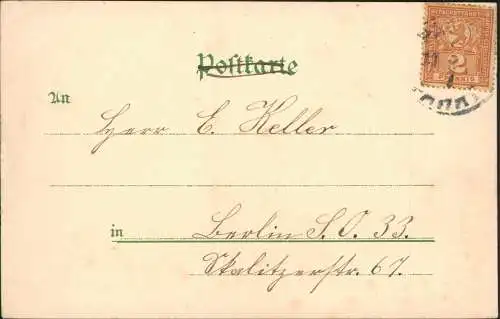 Postkarte
An
Herr E. Keller
in Berlin S. O. 33.
Skalitzerstr. 67.
2
PFENNIG